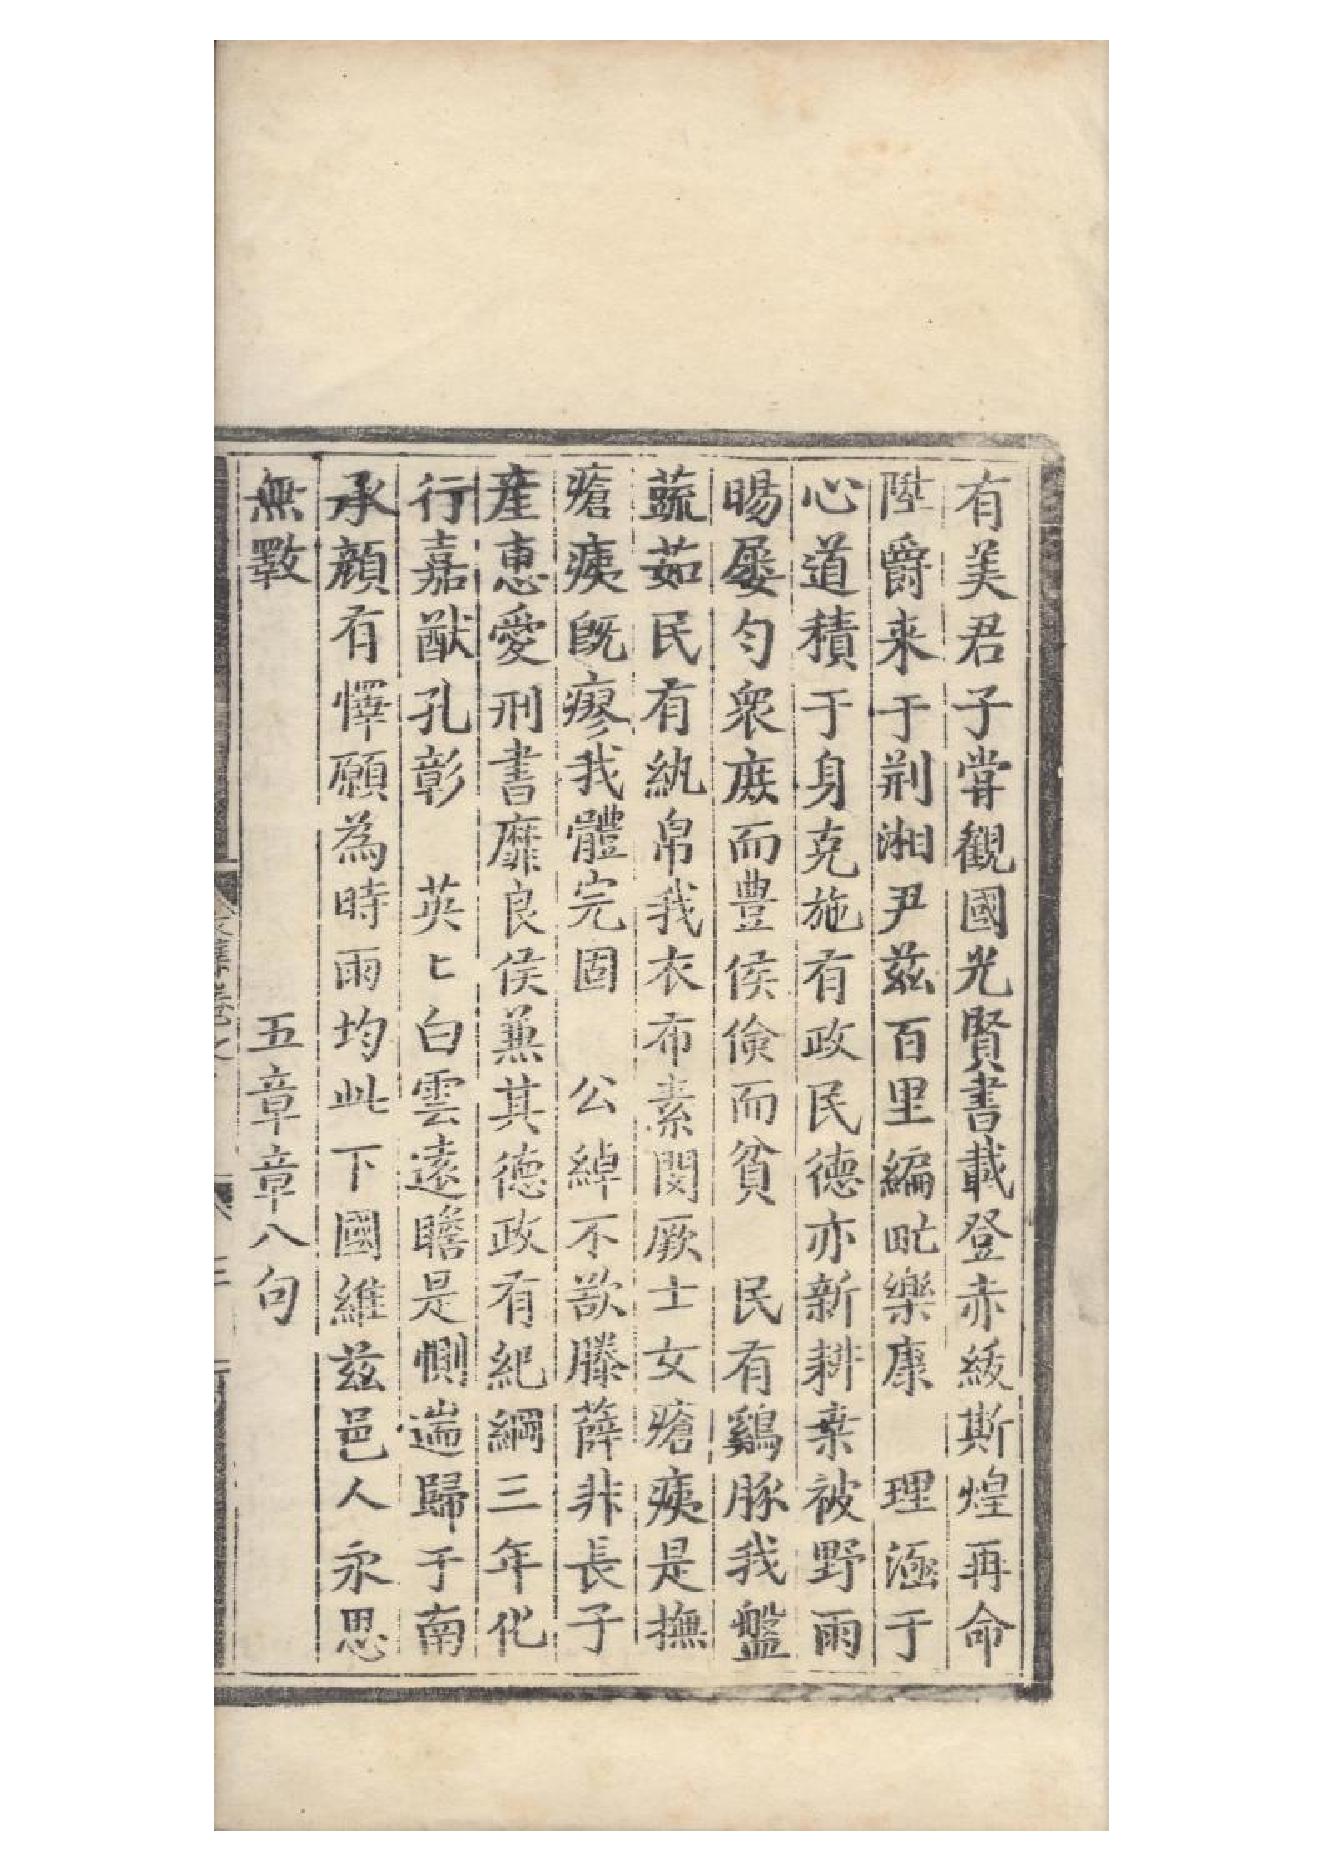 有美君子甞觀國光賢書載登赤紱斯煌再命
陞爵来于荆湘尹兹百里編氓樂康　理涵于
心道積于身克施有政民德亦新耕桒被野雨
暘屡匀衆庻而豊侯儉而貧　民有鷄豚我盤
蔬茹民有紈帛我衣布素閔厥士女瘡痍是撫
瘡痍旣瘳我體完固　公綽不欲滕薛非長子
産惠愛刑書靡良侯兼其德政有紀綱三年化
行嘉猷孔彰　英〻白雲遠瞻是惻遄歸于南
承顔有懌願為時雨均此下國維兹邑人永思
無斁　五章章八句